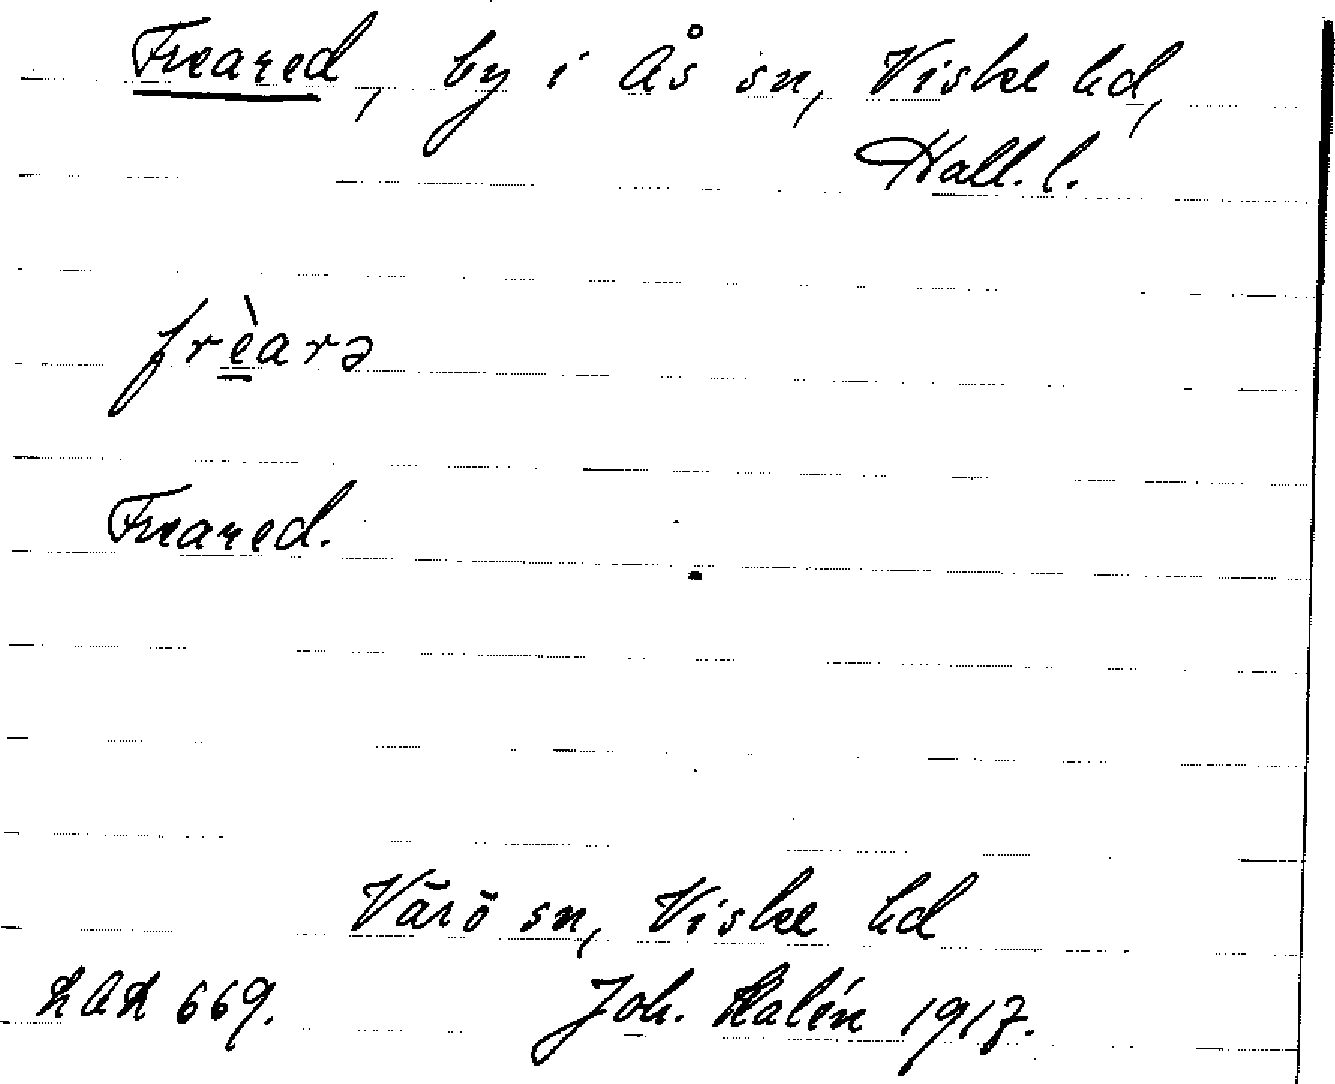 Freared, by i Ås sn, Viske hd,
Hall. l.
frèarə
Freared.
Värö sn, Viske hd
LAL 669. Joh. Kalén 1917.